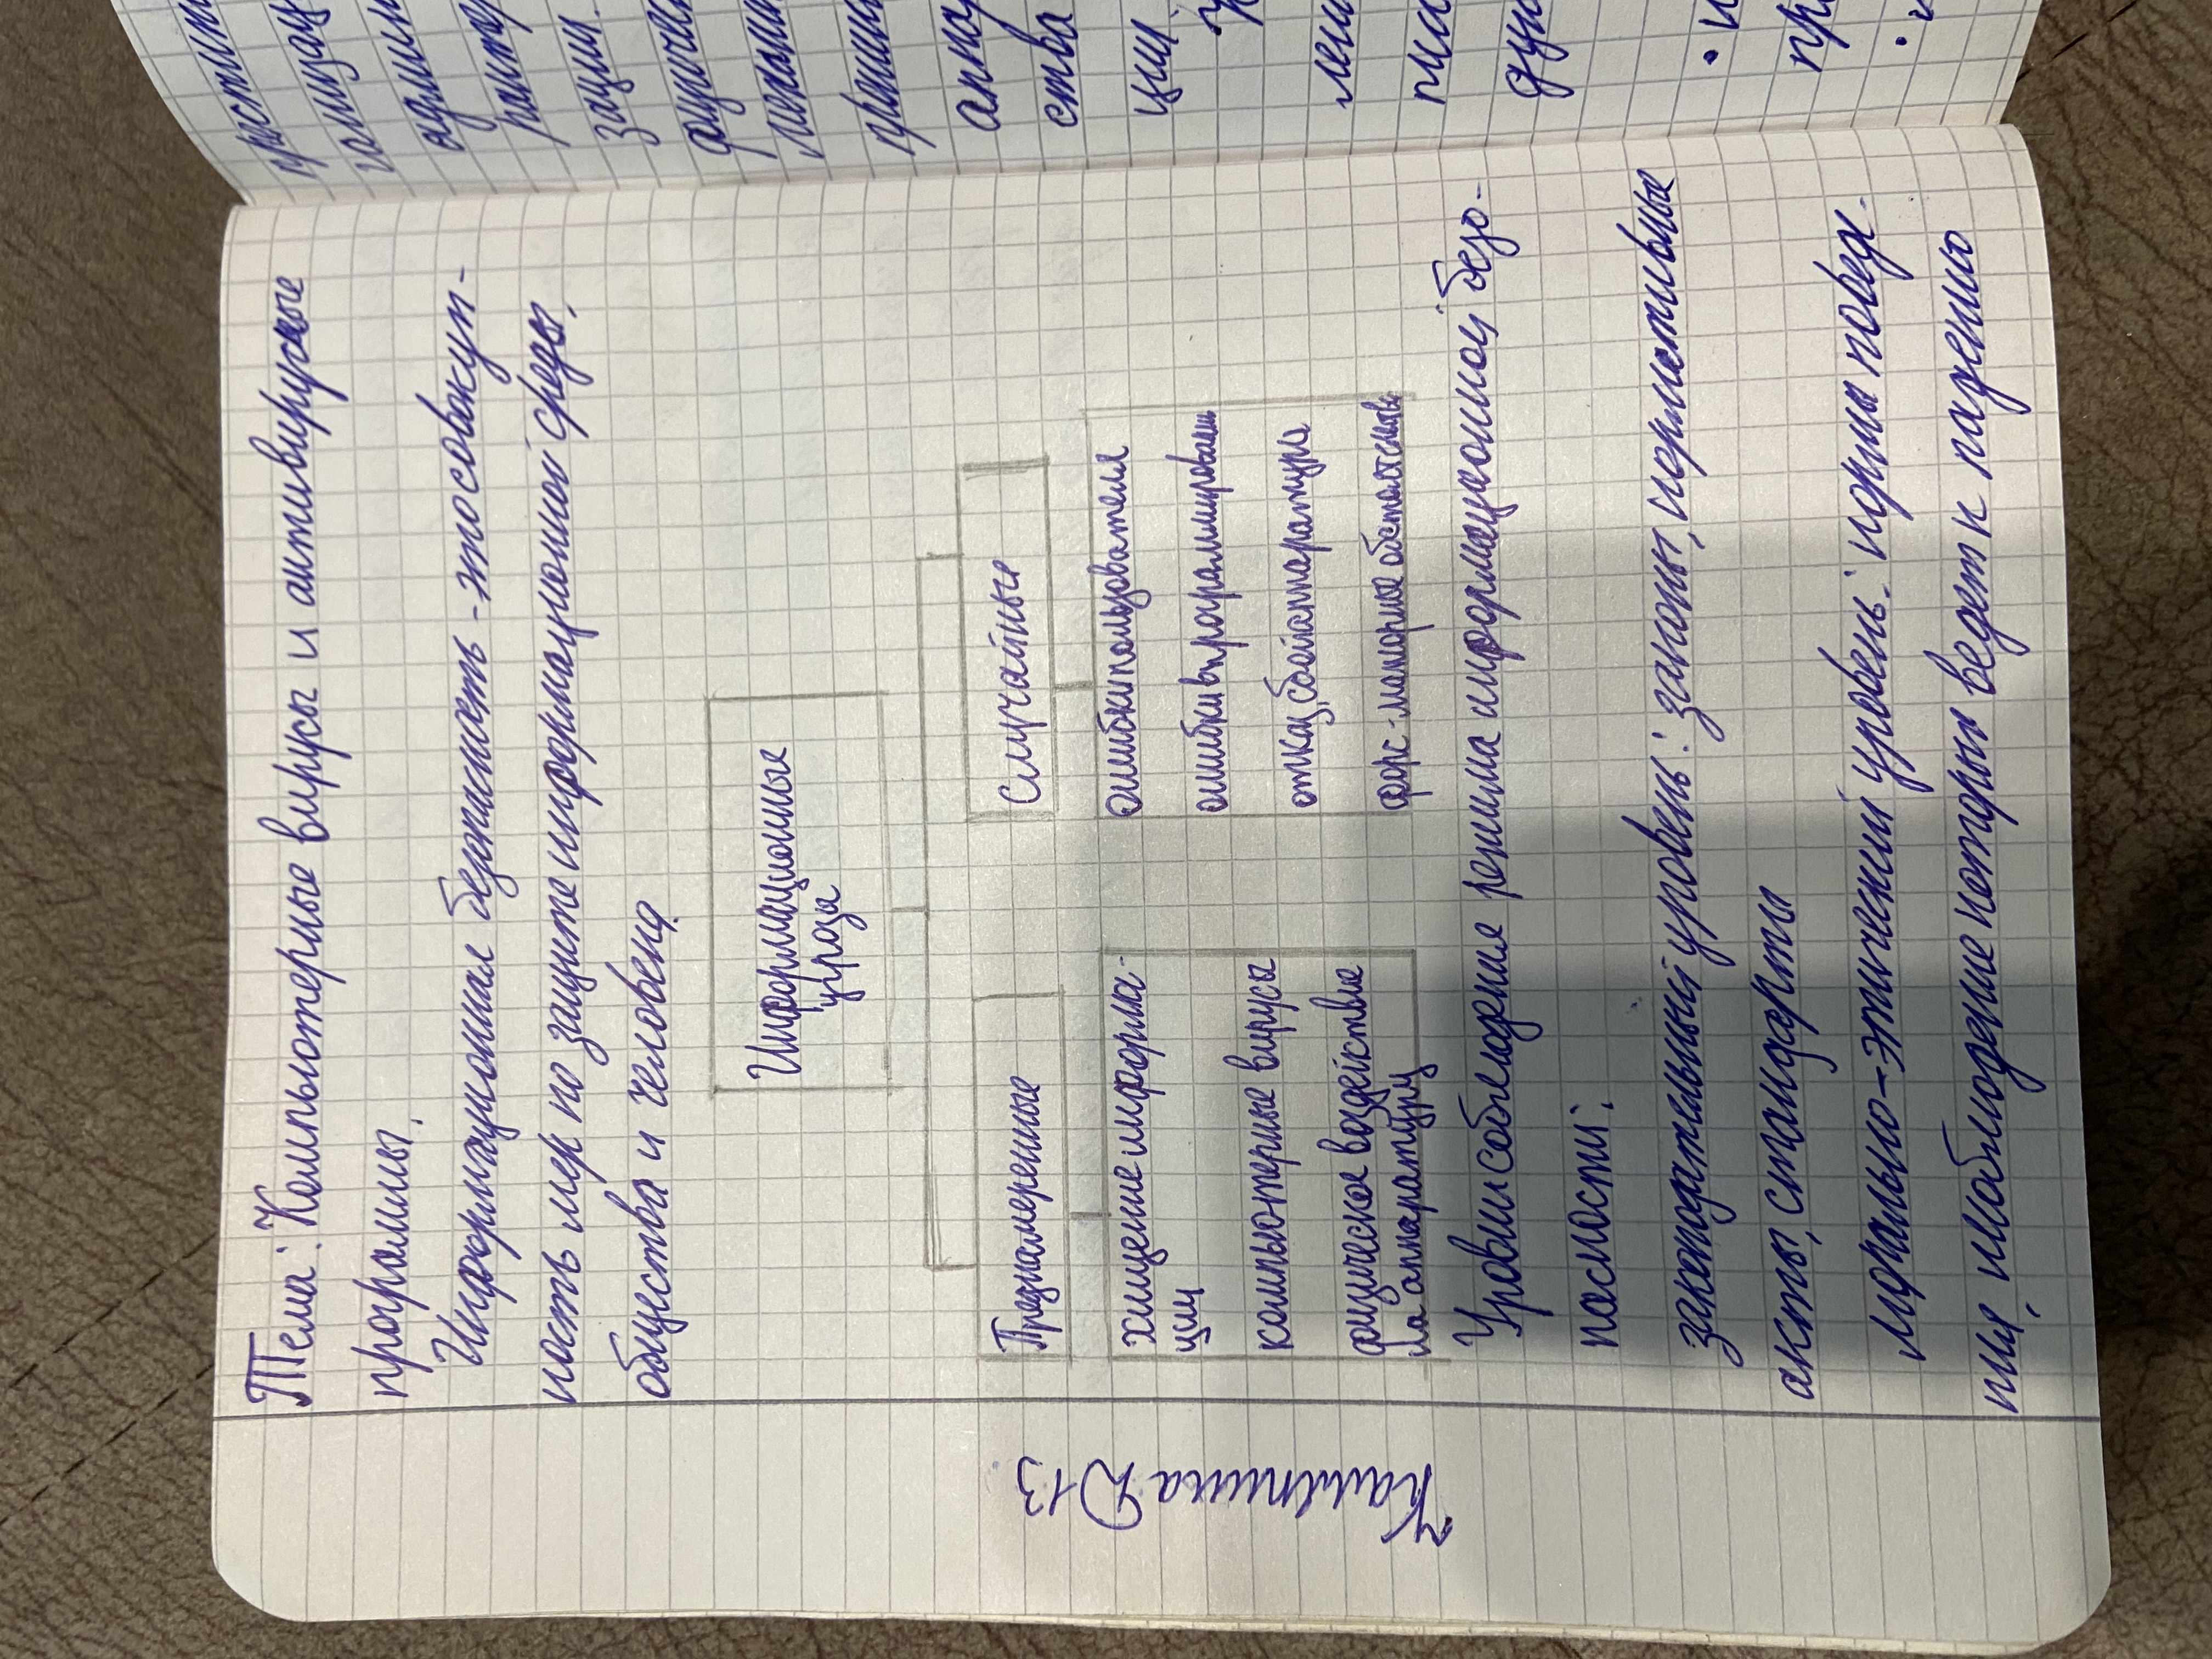 Тема: Компьютерные вирусы и антивирусные
программы.
Информационная безопасность - это совокуп-
ность мер по защите информационной среды,
общества и человека.
Информационные
угроза
Преднамеренные
Случайные
хищение информа-
ции
компьютерные вирусы
физическое воздействие
на аппаратуру
ошибки пользователя
ошибки в программировании
отказ, сбой аппаратуры
форс-мажорные обстоятельства
Уровни соблюдение режима информационной безо-
пасности:
законодательный уровень: законы, нормативные
акты, стандарты
морально-этический уровень: нормы поведе-
ния, несоблюдение которых ведет к падению
Калинина Д 13
админ
зации.
аппа
ства
ции.